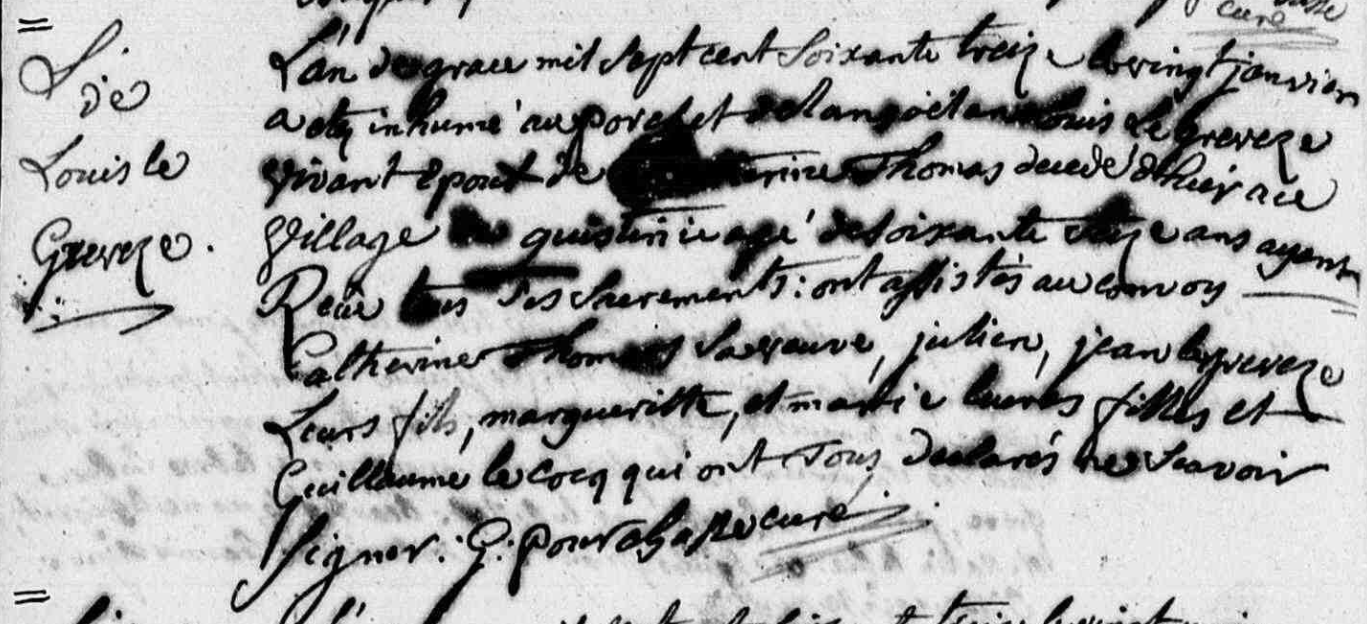 curé
=
S
de
Louis le
Greveze.
L'an de grace mil sept cent soixante treize le vingt janvier
a eté inhumé au porchet de Langoëlan Louis Le Greveze
vivant Epoux de Thomas decedé d'hier a ce
Village de quistinic agé de soixante ans ayant
Recu tous ses sacrements: ont assistés au convoy
Catherine Thomas sa veuve, julien, jean le greveze
Leurs fils, margueritte, et marie leures filles et
Guillaume le Cocq qui ont Tous declarés ne scavoir
signer. G. curé
=